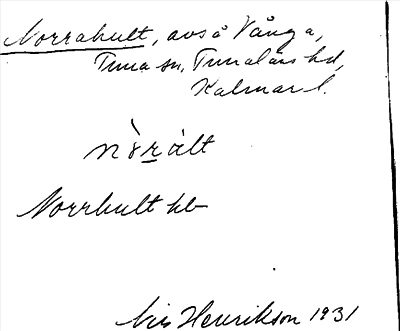 Norrahult, avs å Vånga,
Tuna sn, Tunaläns hd,
Kalmar l.
nòrält
Norrhult hb
Henrikson 1931